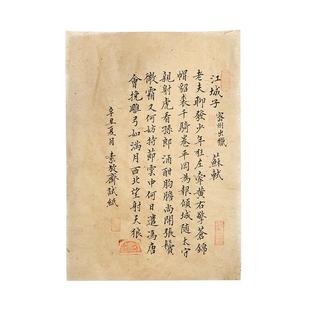 江城子 密州出獵 蘇軾
老夫聊發少年狂左牽黃右擎蒼錦
帽貂裘千騎卷平岡為報傾城隨太守
親射虎看孫郎酒酣胸膽尚開張鬢
微霜又何妨持節雲中何日遣馮唐
會挽雕弓如滿月西北望射天狼
辛丑夏月 素放齋試紙